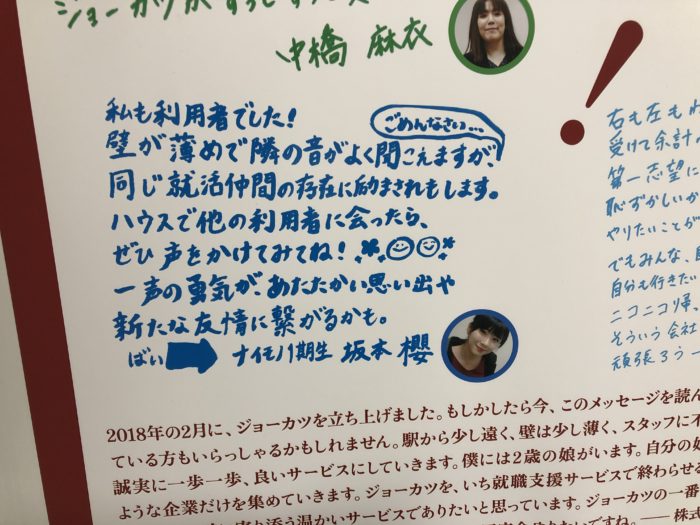 ジョーカツが
中橋 麻衣
私も利用者でした!
ごめんなさい…
壁が薄めで隣の音がよく聞こえますが
同じ就活仲間の存在に励まされもします。
ハウスで他の利用者に会ったら、
ぜひ声をかけてみてね!
一声の勇気が、あたたかい思い出や
新たな友情に繋がるかも。
ばい ナイモノ1期生 坂本 櫻
!
右も左もわ
受けて余計
第一志望に
恥ずかしいが
やりたいことが
でもみんな、
自分も行きたい
ニコニコリ帰、
そういう会社
頑張ろうー
2018年の2月に、ジョーカツを立ち上げました。もしかしたら今、このメッセージを読ん
ている方もいらっしゃるかもしれません。駅から少し遠く、壁は少し薄く、スタッフに不
誠実に一歩一歩、良いサービスにしていきます。僕には2歳の娘がいます。自分の娘
ような企業だけを集めていきます。ジョーカツを、いち就職支援サービスで終わらせる
寄り添う温かいサービスでありたいと思っています。ジョーカツの一番
ですね。——株式